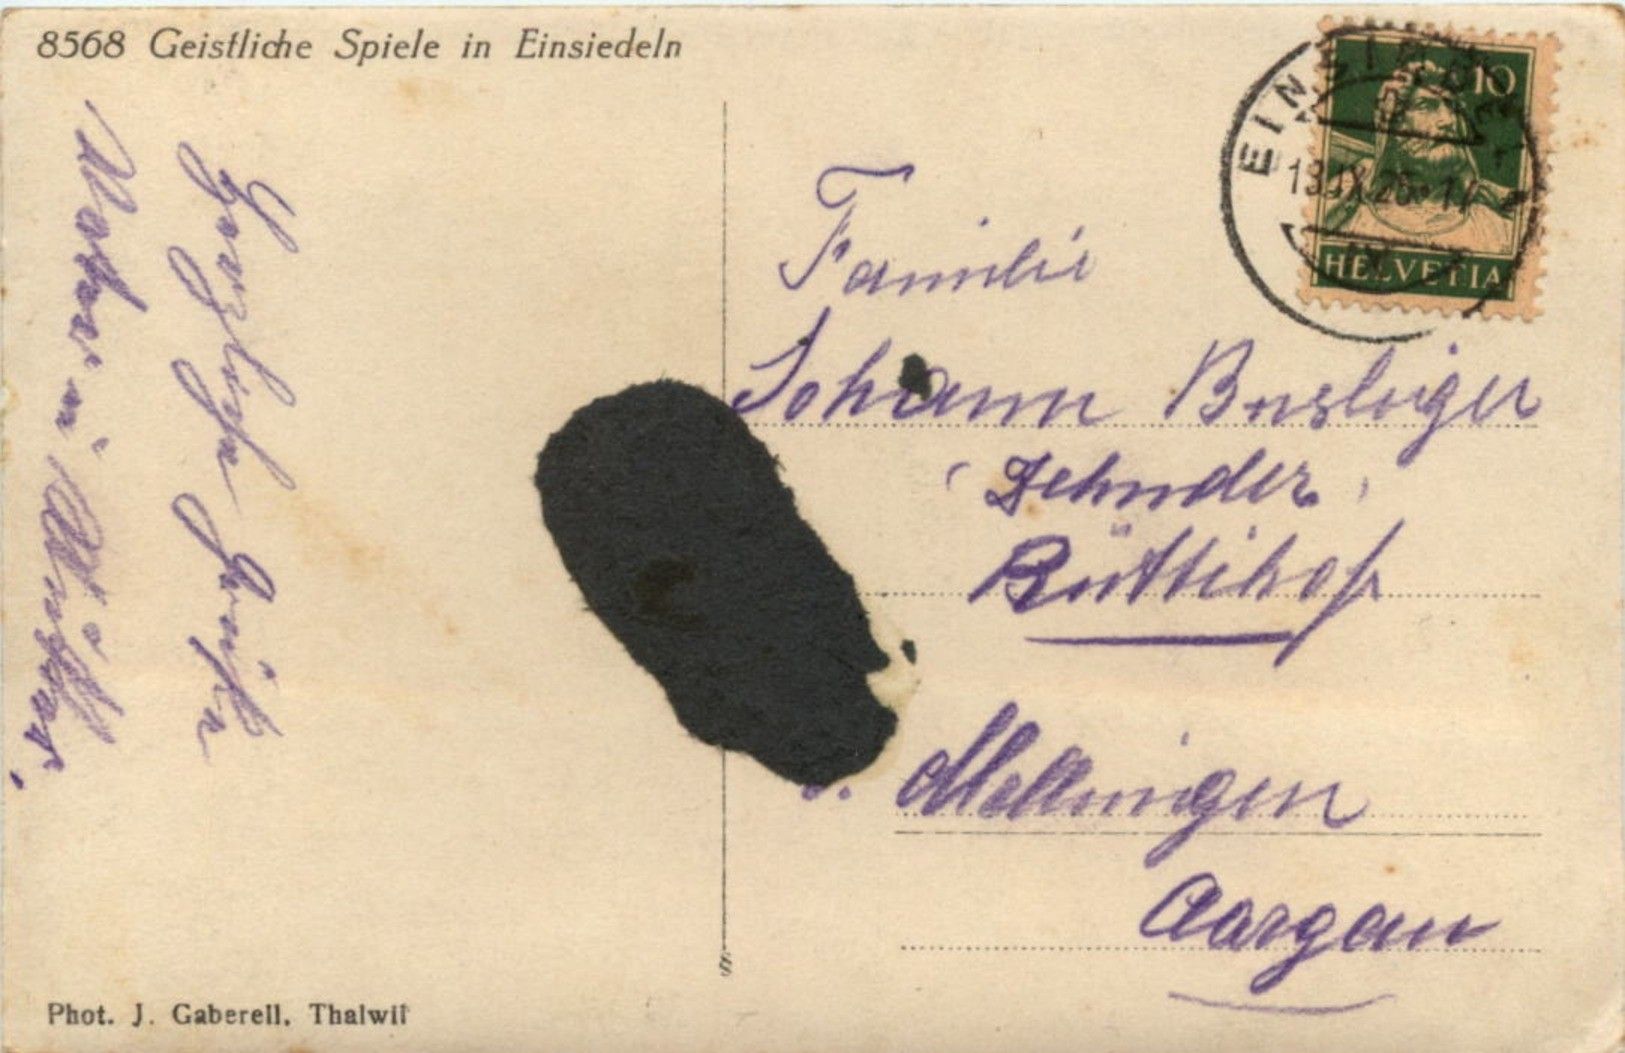 8568 Geistliche Spiele in Einsiedeln
Herzliche Grüße
Vater u. Mutter
EINSIEDELN
10
HELVETIA
Familie
Johann Busslinger
(Zehnder)
Rüttihof
b. Mellingen
Aargau
Phot. J. Gaberell, Thalwil